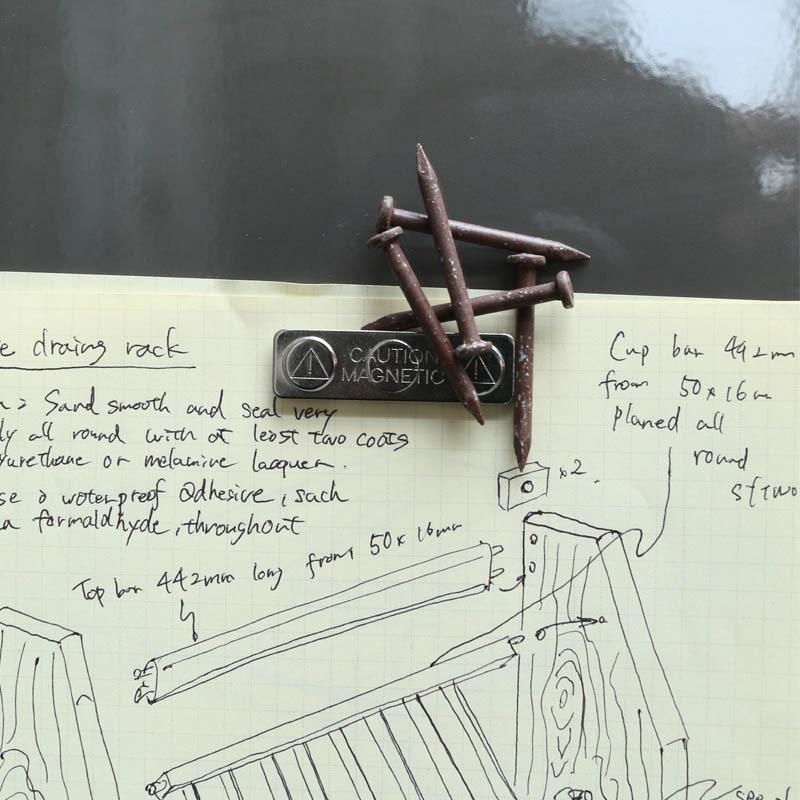 e draing rack
CAUTION
MAGNETIC
Sand smooth and seal very
ly all round with at least two coats
yurethane or melamine lacquer.
se a waterproof adhesive, such
a formaldhyde, throughout
x2.
Cup bar 442mm
from 50x16m
planed all
round
s/two
Top bar 442mm long from 50x16mm